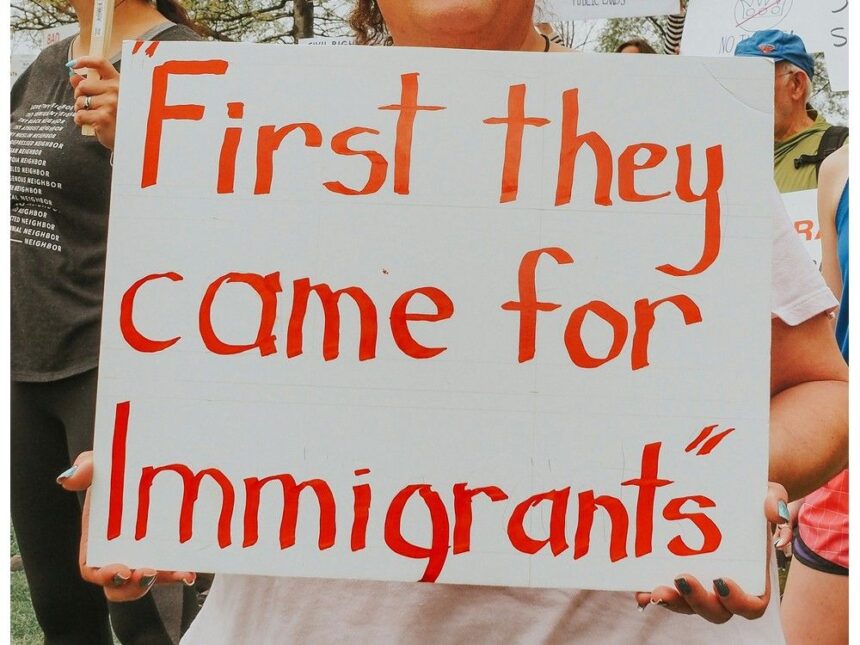 PUBLIC LANDS
"First they
came for
Immigrants"
NEIGHBOR
NEIGHBOR
NEIGHBOR
NEIGHBOR
NEIGHBOR
NEIGHBOR
NEIGHBOR
NEIGHBOR